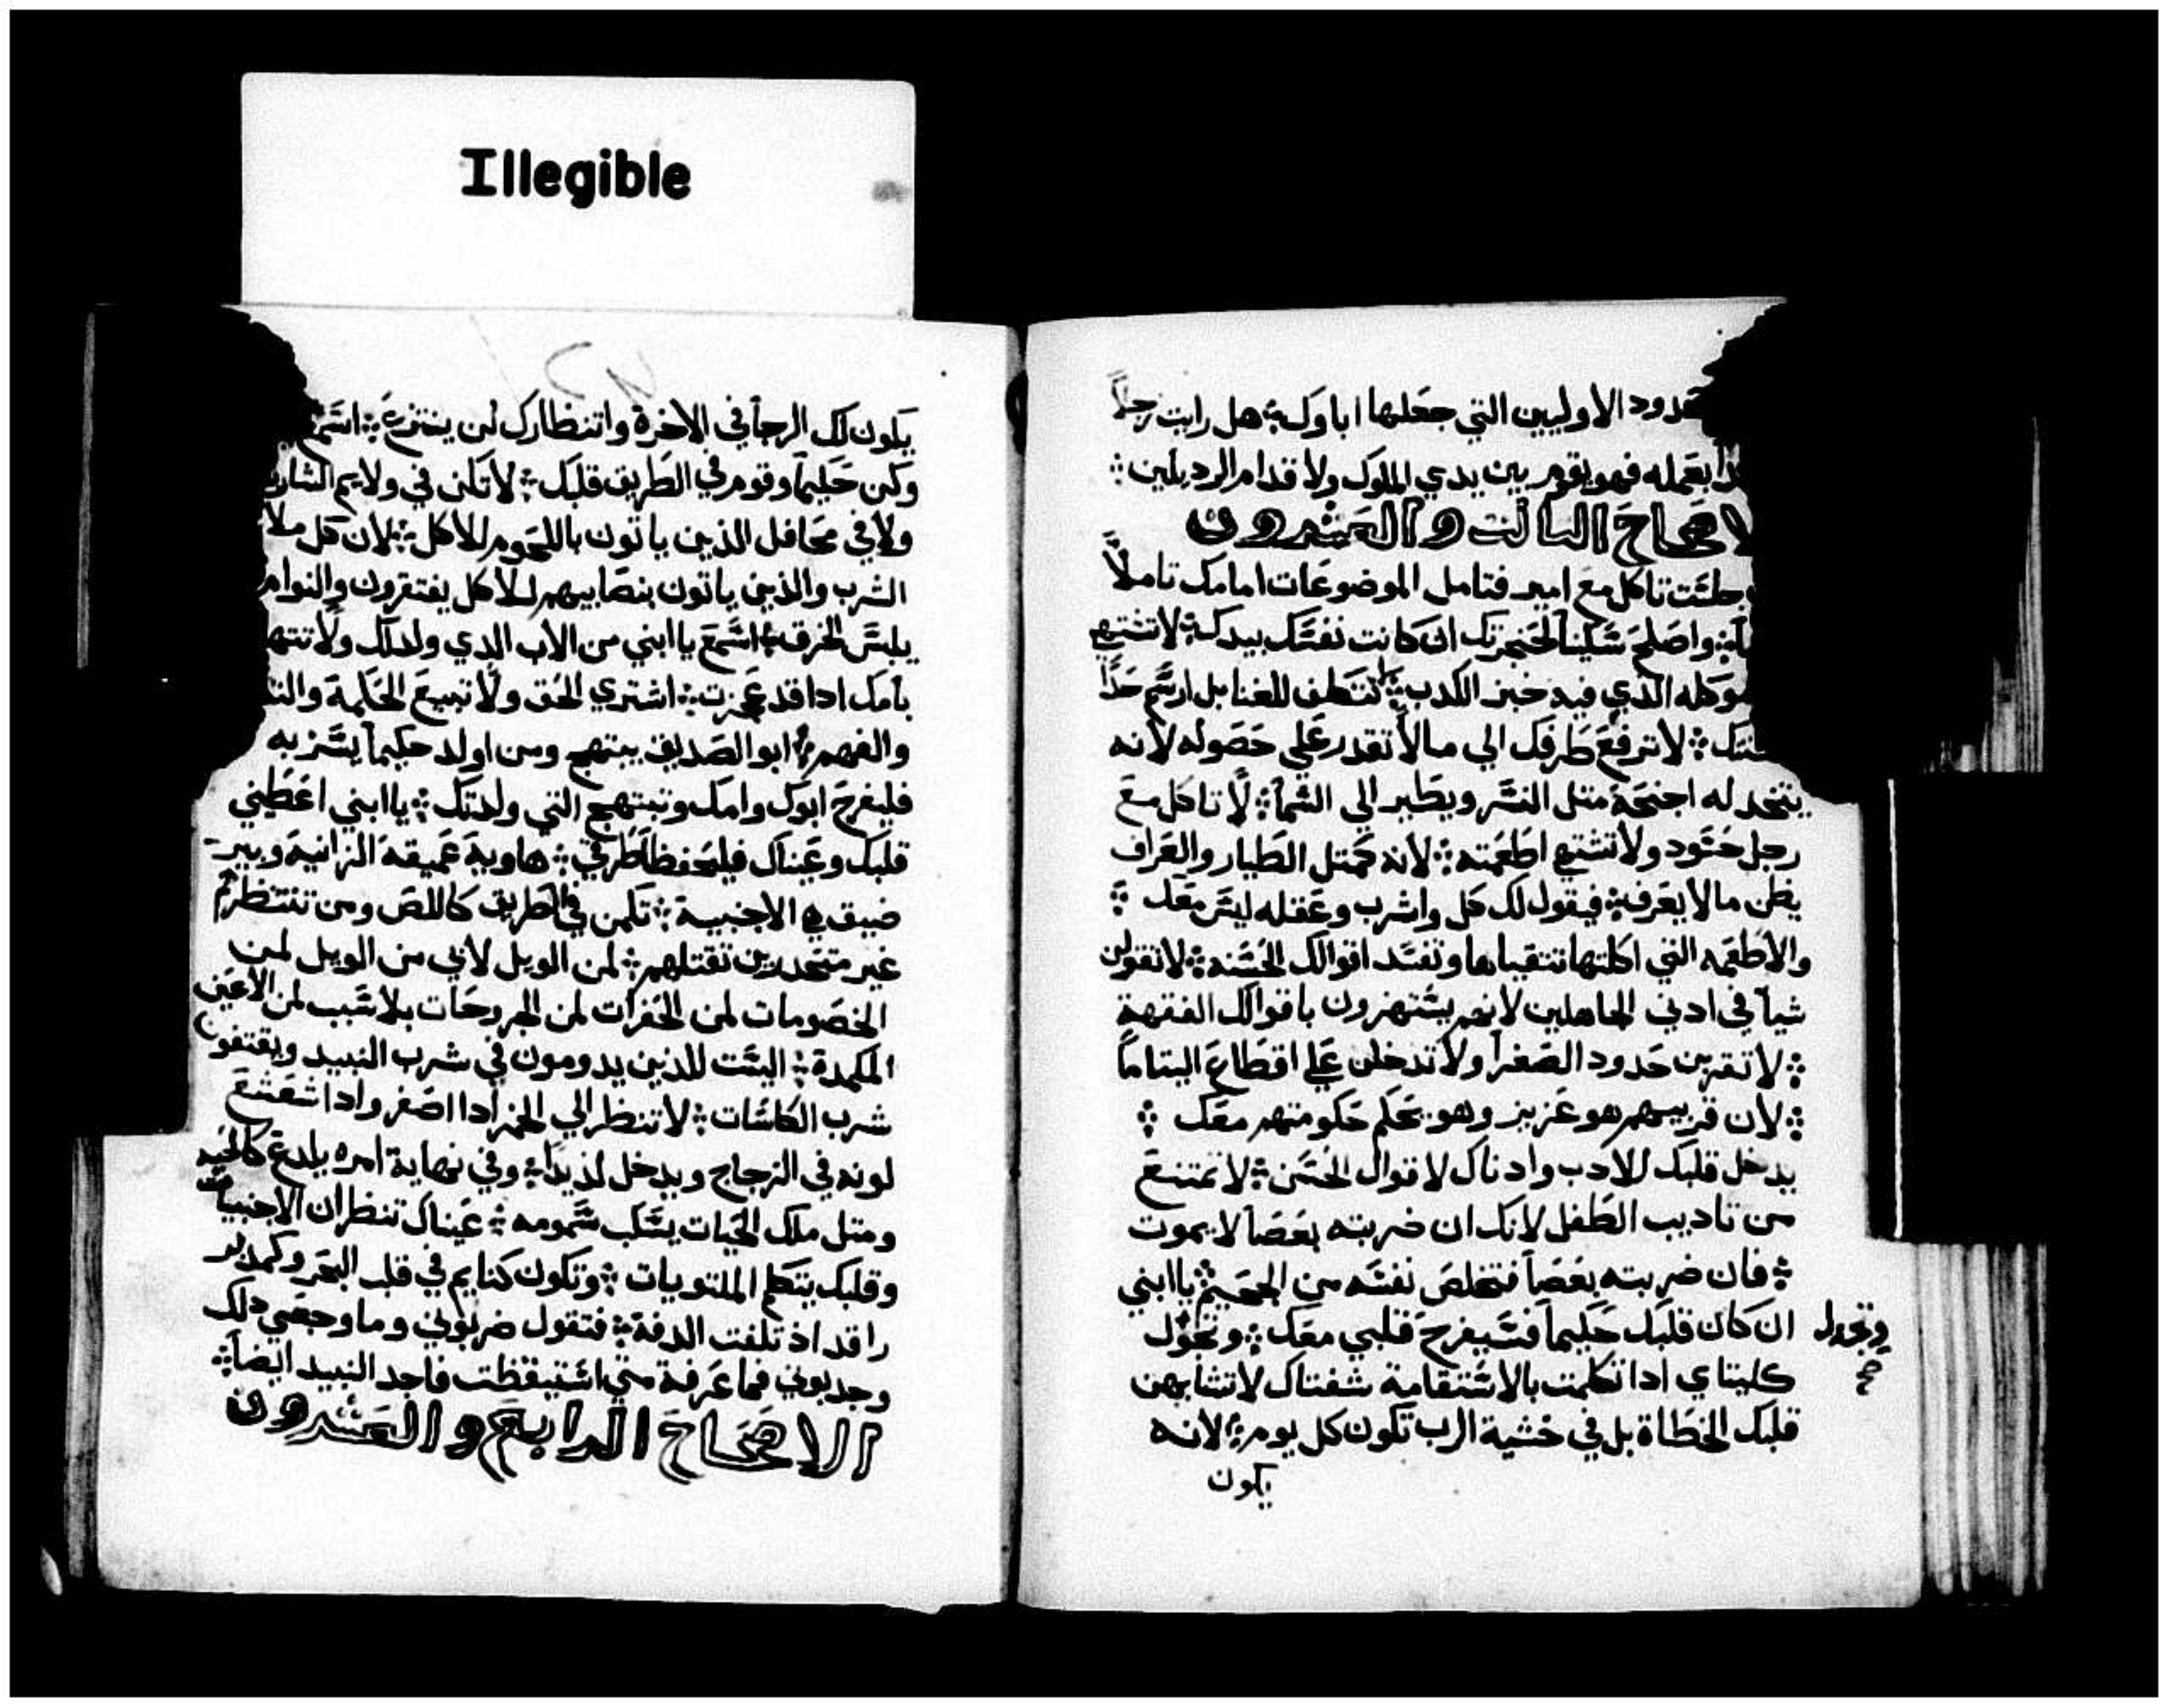 Illegible
حدود الاوليين التي جعلها اباوك ܀ هل رايت رجلاً
بعمله فهو يقوم بين يدي الملوك ولا قدام الرديلين ܀
الاصحاح التالت والعشرون
جلست تاكل مع امير فتامل الموضوعات امامك تاملاً
واصلح سكيناً لحنجرتك ان كانت نفسك بيدك ܀ لا تشتهي
ماكوله الذي فيه خبز الكدب ܀ لا تتطف للغنا بل ارسم حداً
لا ترفع طرفك الي ما لا تقدر علي حصوله لانه
يتخد له اجنحة متل النسر ويطير الي السما ܀ لا تاكل مع
رجل حسود ولا تشتهي اطعمته ܀ لانه كمتل الطيار والعراف
يظن ما لا يعرف ܀ فيقول لك كل واشرب وعقله ليس معك ܀
والاطعمه التي اكلتها تتقياها وتفسد اقوالك الحسنه ܀ لا تقولن
شياً في ادني الجاهلين لانهم يستهزون باقوالك الفقهة
܀ لا تقربن حدود الصغرا ولا تدخلن علي اقطاع اليتاما
܀ لان قريبهم هو عزيز وهو يحكم حكومتهم معك ܀
يدخل قلبك للادب وادناك لاقوال الحسن ܀ لا تمتنع
من تاديب الطفل لانك ان ضربته بعصا لا يموت
܀ فان ضربته بعصاً فتخلص نفسه من الجحيم ܀ يا ابني
ان كان قلبك حكيماً فسيفرح قلبي معك ܀ وتحول
وتجدل
صح
كليتاي ادا تكلمت بالاستقامة شفتاك لا تشابهن
قلبك الخطاة بل في خشية الرب تكون كل يوم ܀ لانه
يكون
يكون لك الرجا في الاخرة وانتظارك لن ينتزع ܀ اسمع
وكن حكيماً وقوم في الطريق قلبك ܀ لا تكن في ولايم الشاربين
ولا في محافل الذين ياتون باللحوم للاكل ܀ لان كل ملا
الشرب والذين ياتون بنصابيهم للاكل يفتقرون والنوام
يلبس الخرق ܀ اسمع يا ابني من الاب الدي ولدك ولا تتها
بامك ادا قد عجزت ܀ اشتري الحق ولا تبيع الحكمة
والفهم ܀ ابو الصديق يبتهج ومن اولد حكيماً يسر به
فليفرح ابوك وامك وتبتهج التي ولدتك ܀ يا ابني اعطيني
قلبك وعيناك فليحفظا طرقي ܀ هاوية عميقة الزانية وبير
ضيق هي الاجنبية ܀ تكمن في الطريق كاللص ومن تنتظرهم
غير متحدرين تقتلهم ܀ لمن الويل لابي من الويل لمن
الخصومات لمن الحفرات لمن الجروحات بلا سبب لمن الاعين
المكمدة ܀ اليست للذين يدومون في شرب النبيد ويقتفون
شرب الكاسات ܀ لا تنظر الي الخمر ادا اصفر وادا شعشع
لونه في الزجاج ويدخل لذيذاً ܀ وفي نهاية امره يلدغ كالحيه
ومتل ملك الحيات يسكب سمومه ܀ عيناك تنظران الاجنبيات
وقلبك يتكلم الملتويات ܀ وتكون كنايم في قلب البحر وكمدبر
راقد اذ تلفت الدفة ܀ فتقول ضربوني وما وجعني دلك
وجدبوني فما عرفة متي استيقظت فاجد النبيد ايضاً ܀
الاصحاح الرابع والعشرون